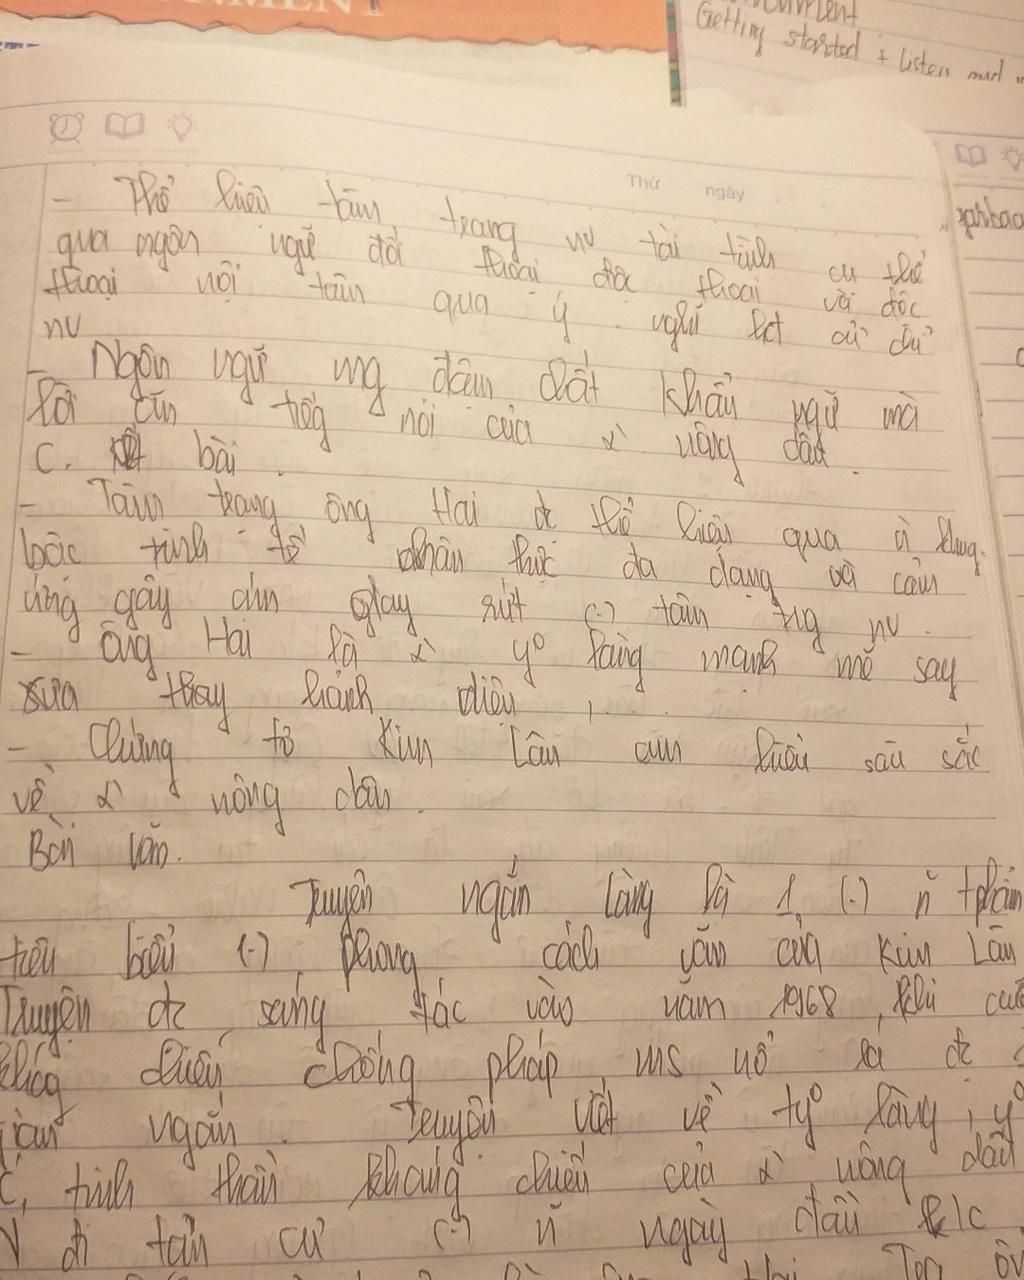 NMENT
Getting started + Listen and
Thứ ngày
- Thể hiện tâm trạng nv tài tình cụ thể
qua ngôn ngữ đối thoại độc thoại và độc
thoại nội tâm qua ý nghĩ
nv
- Ngôn ngữ mg đậm chất khẩu ngữ mà
lời ăn tiếg nói của n' nông dân.
C. Kết bài.
- Tâm trạng ông Hai đc thể hiện qua
bộc tính tế chân thực đa dạng và cảm
ứng gây day rứt (.) tâm tạg nv.
- Ông Hai là n' y⁰ làng mạnh mẽ say
sưa thay hành diện,
- Chứng tỏ Kim Lân am hiểu sâu sắc
về n' nông dân.
Bài văn.
Truyện ngắn Làng là 1 (.) n~ tphẩm
tiêu biểu (.) phong cách văn của Kim Lân
Truyện đc sáng tác vào năm 1968, khi cuộ
khág chiến chống pháp ms nổ ra đc
ngắn. Truyện viết về ty⁰ làng, y⁰
, tinh thần kháng chiến của n' nông dân
đi tản cư (.) n~ ngày đầu k/c
Hai